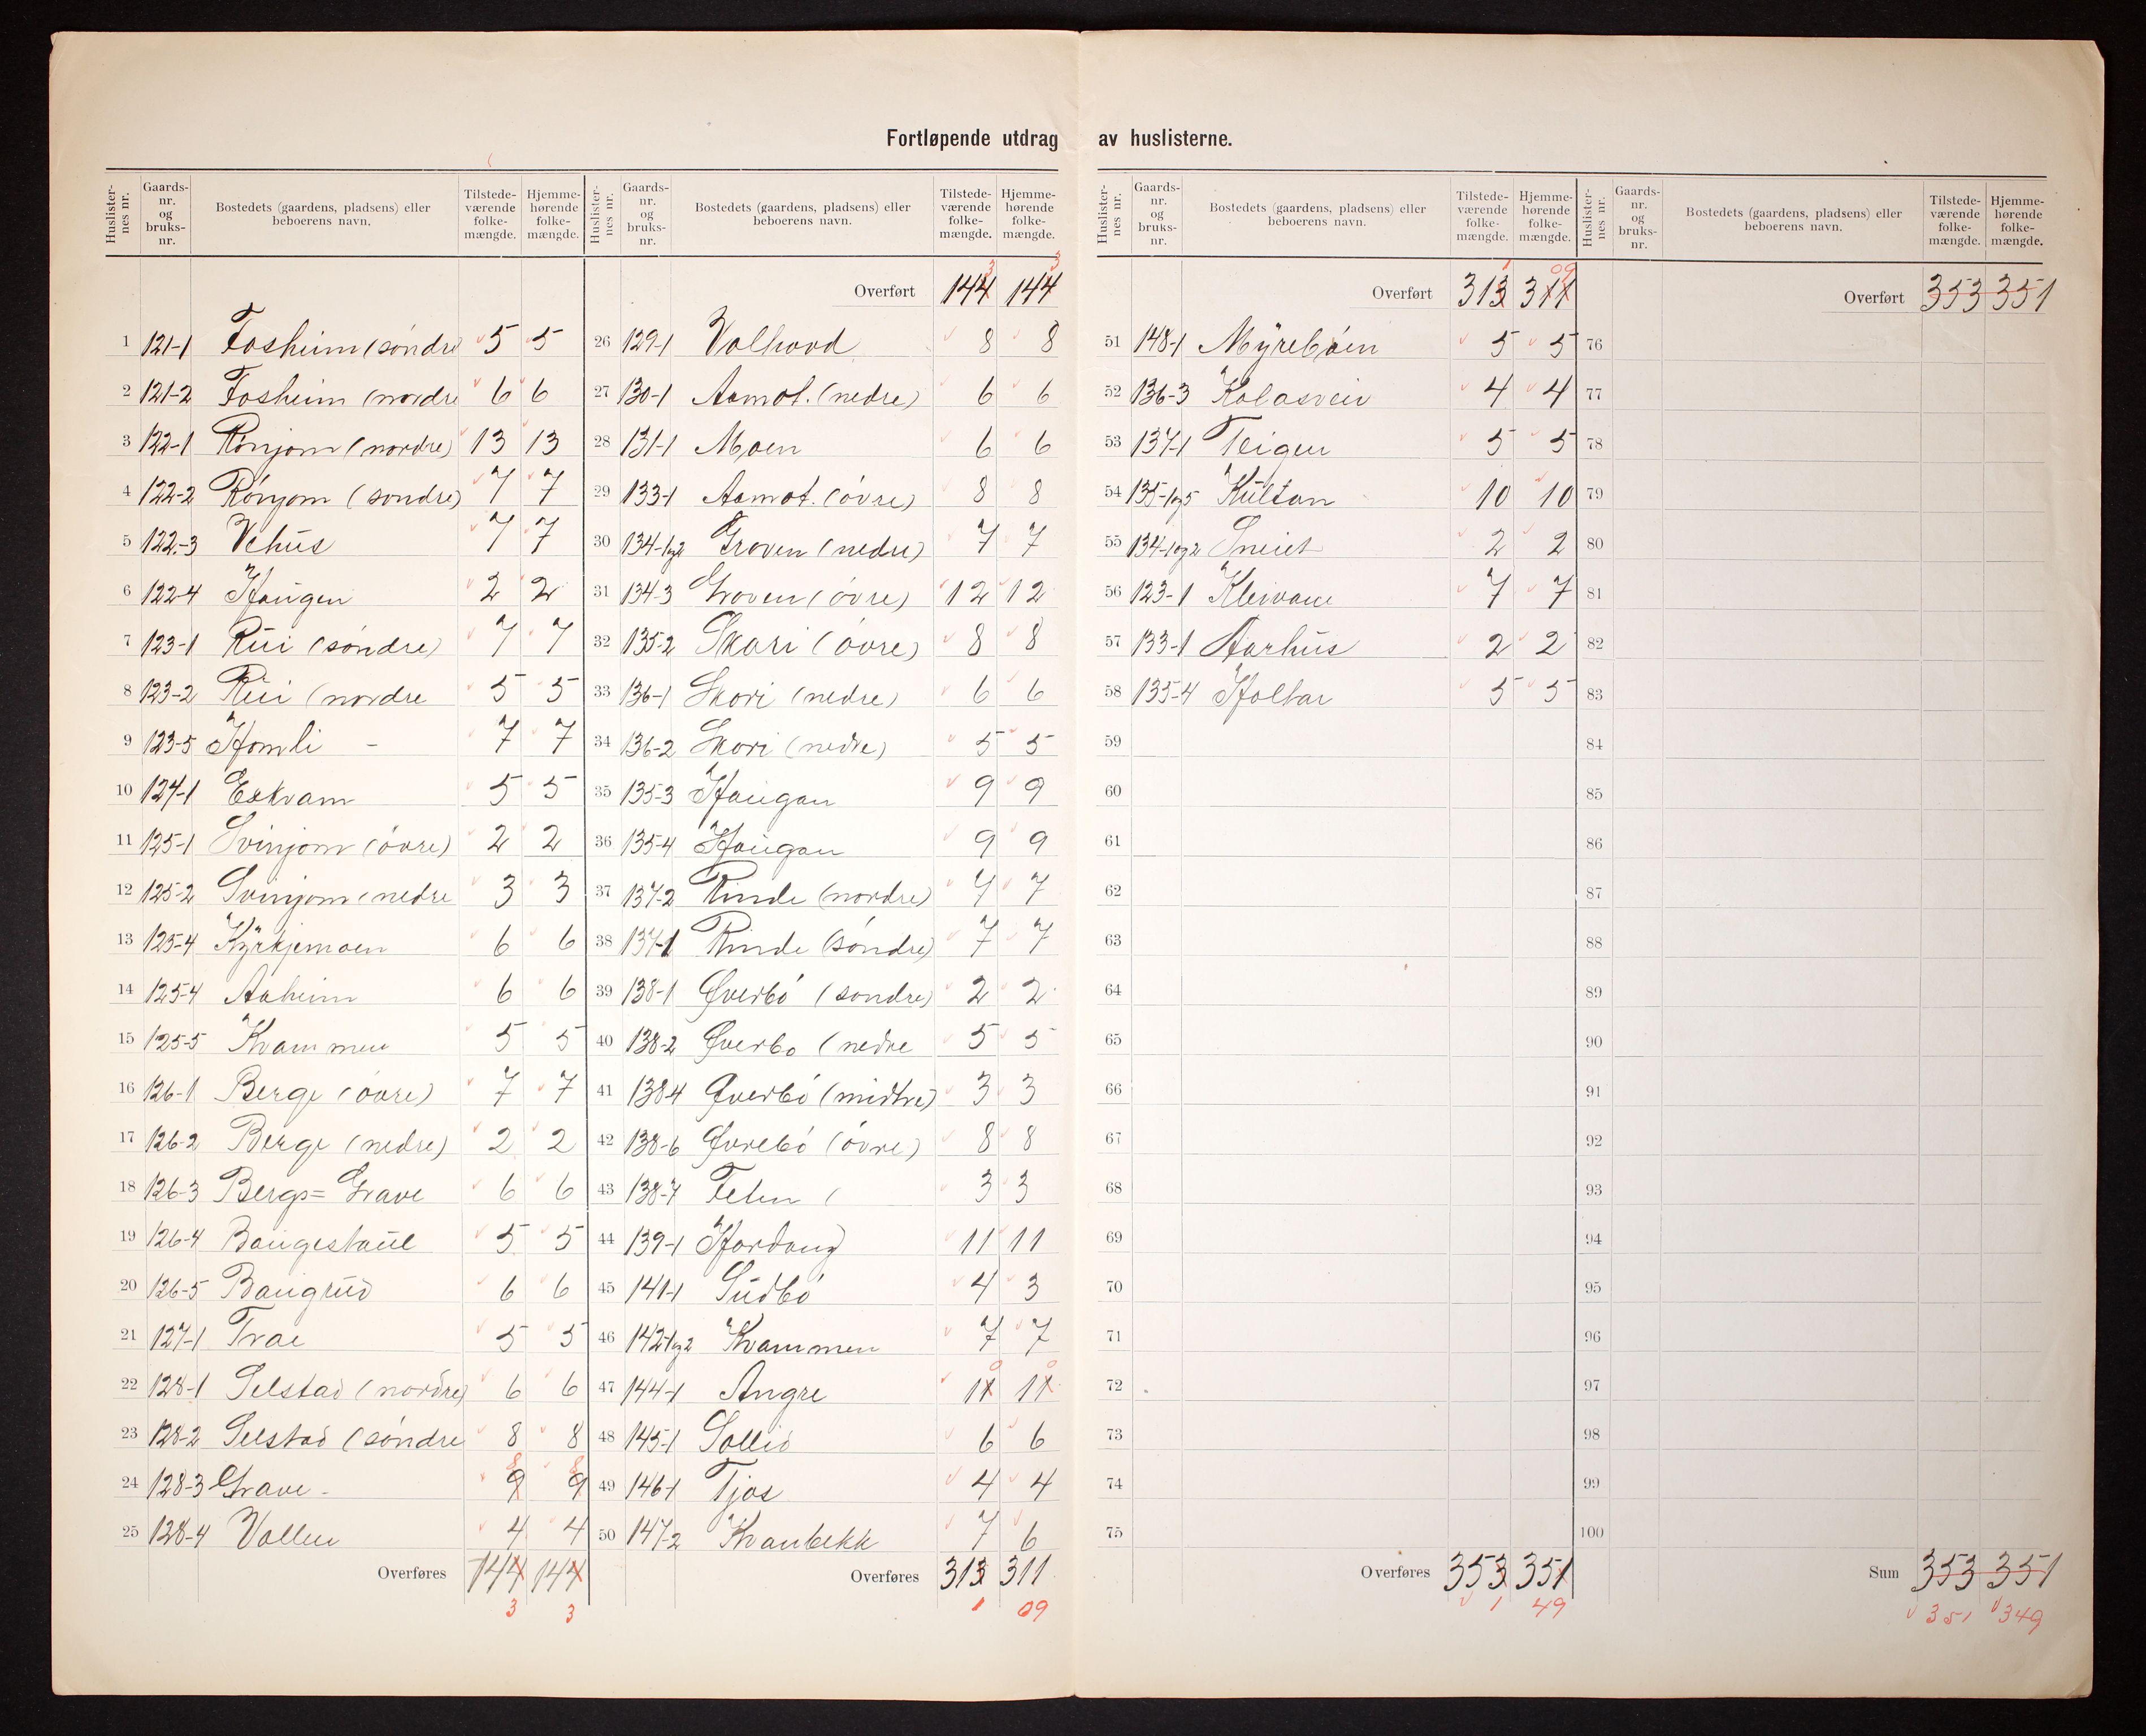 Fortløpende utdrag av huslisterne.
Huslister-nes nr. Gaards-nr. og bruks-nr. Bostedets (gaardens, pladsens) eller beboerens navn. Tilstede-værende folke-mængde. Hjemme-hørende folke-mængde.
1 121-1 Fosheim (söndre 5 5
2 121-2 Fosheim (nordre 6 6
3 122-1 Rönjom (nordre) 13 13
4 122-2 Rönjom (sondre) 7 7
5 122-3 Vehus 7 7
6 122-4 Haugen 2 2
7 123-1 Rui (söndre) 7 7
8 123-2 Rui (nordre 5 5
9 123-5 Homli - 7 7
10 124-1 Eskvam 5 5
11 125-1 Svinjom (övre) 2 2
12 125-2 Svinjom (nedre 3 3
13 125-4 Kyrkjemoen 6 6
14 125-4 Aaheim 6 6
15 125-5 Kvammen 5 5
16 126-1 Berge (övre) 7 7
17 126-2 Berge (nedre) 2 2
18 126-3 Bergs= Grave 6 6
19 126-4 Baugestaul 5 5
20 126-5 Baugrud 6 6
21 127-1 Trae 5 5
22 128-1 Selstad (nordre) 6 6
23 128-2 Selstad (söndre 8 8
24 128-3 Grave - 9 8 9 8
25 128-4 Vollen 4 4
Overføres 144 144
3 3
Huslister-nes nr. Gaards-nr. og bruks-nr. Bostedets (gaardens, pladsens) eller beboerens navn. Tilstede-værende folke-mængde. Hjemme-hørende folke-mængde.
3 3
Overført 144 144
26 129-1 Volhovd 8 8
27 130-1 Aamot. (nedre) 6 6
28 131-1 Moen 6 6
29 133-1 Aamot. (övre) 8 8
30 134-1og2 Groven (nedre) 7 7
31 134-3 Groven (övre) 12 12
32 135-2 Skari (övre) 8 8
33 136-1 Skori (nedre) 6 6
34 136-2 Skori (nedre) 5 5
35 135-3 Haugan 9 9
36 135-4 Haugan 9 9
37 137-2 Rinde (nordre) 7 7
38 137-1 Rinde (söndre) 7 7
39 138-1 Øverbö (sondre) 2 2
40 138-2 Øverbo (nedre 5 5
41 138-4 Øverbö (midtre) 3 3
42 138-6 Øvrebö (övre) 8 8
43 138-7 Felen ( 3 3
44 139-1 Hordang 11 11
45 141-1 Sudbö 4 3
46 142-1og2 Kvammen 7 7
47 144-1 Angre 11 0 11 0
48 145-1 Sollid 6 6
49 146-1 Tjos 4 4
50 147-2 Kvanbekk 7 6
Overføres 313 311
1 09
Huslister-nes nr. Gaards-nr. og bruks-nr. Bostedets (gaardens, pladsens) eller beboerens navn. Tilstede-værende folke-mængde. Hjemme-hørende folke-mængde.
1 09
Overført 313 311
51 148-1 Myreböen 5 5
52 136-3 Kolasvein 4 4
53 137-1 Teigen 5 5
54 135-1og5 Kultan 10 10
55 134-1og2 Sneiet 2 2
56 123-1 Kleivane 7 7
57 133-1 Aarhus 2 2
58 135-4 Holtar 5 5
59
60
61
62
63
64
65
66
67
68
69
70
71
72
73
74
75
Overføres 353 351
1 49
Huslister-nes nr. Gaards-nr. og bruks-nr. Bostedets (gaardens, pladsens) eller beboerens navn. Tilstede-værende folke-mængde. Hjemme-hørende folke-mængde.
Overført 353 351
76
77
78
79
80
81
82
83
84
85
86
87
88
89
90
91
92
93
94
95
96
97
98
99
100
Sum 353 351
351 349